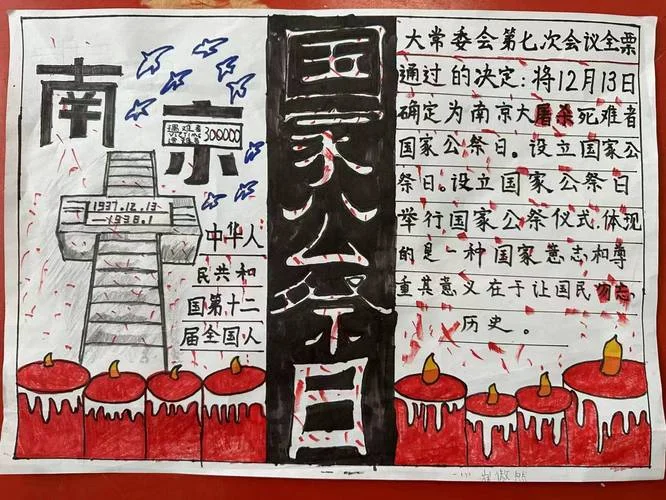 南京
遇难者
VICTIMS
遇难者
300000
1937.12.13
—1938.1
中华人
民共和
国第十二
届全国人
国家公祭日
大常委会第七次会议全票
通过的决定:将12月13日
确定为南京大屠杀死难者
国家公祭日。设立国家公
祭日。设立国家公祭日
举行国家公祭仪式,体现
的是一种国家意志和尊
重其意义在于让国民勿忘
历史。